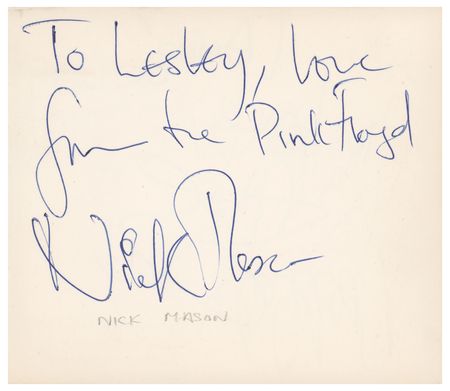 To Lesley, love
from the Pink Floyd
Nick Mason
NICK MASON